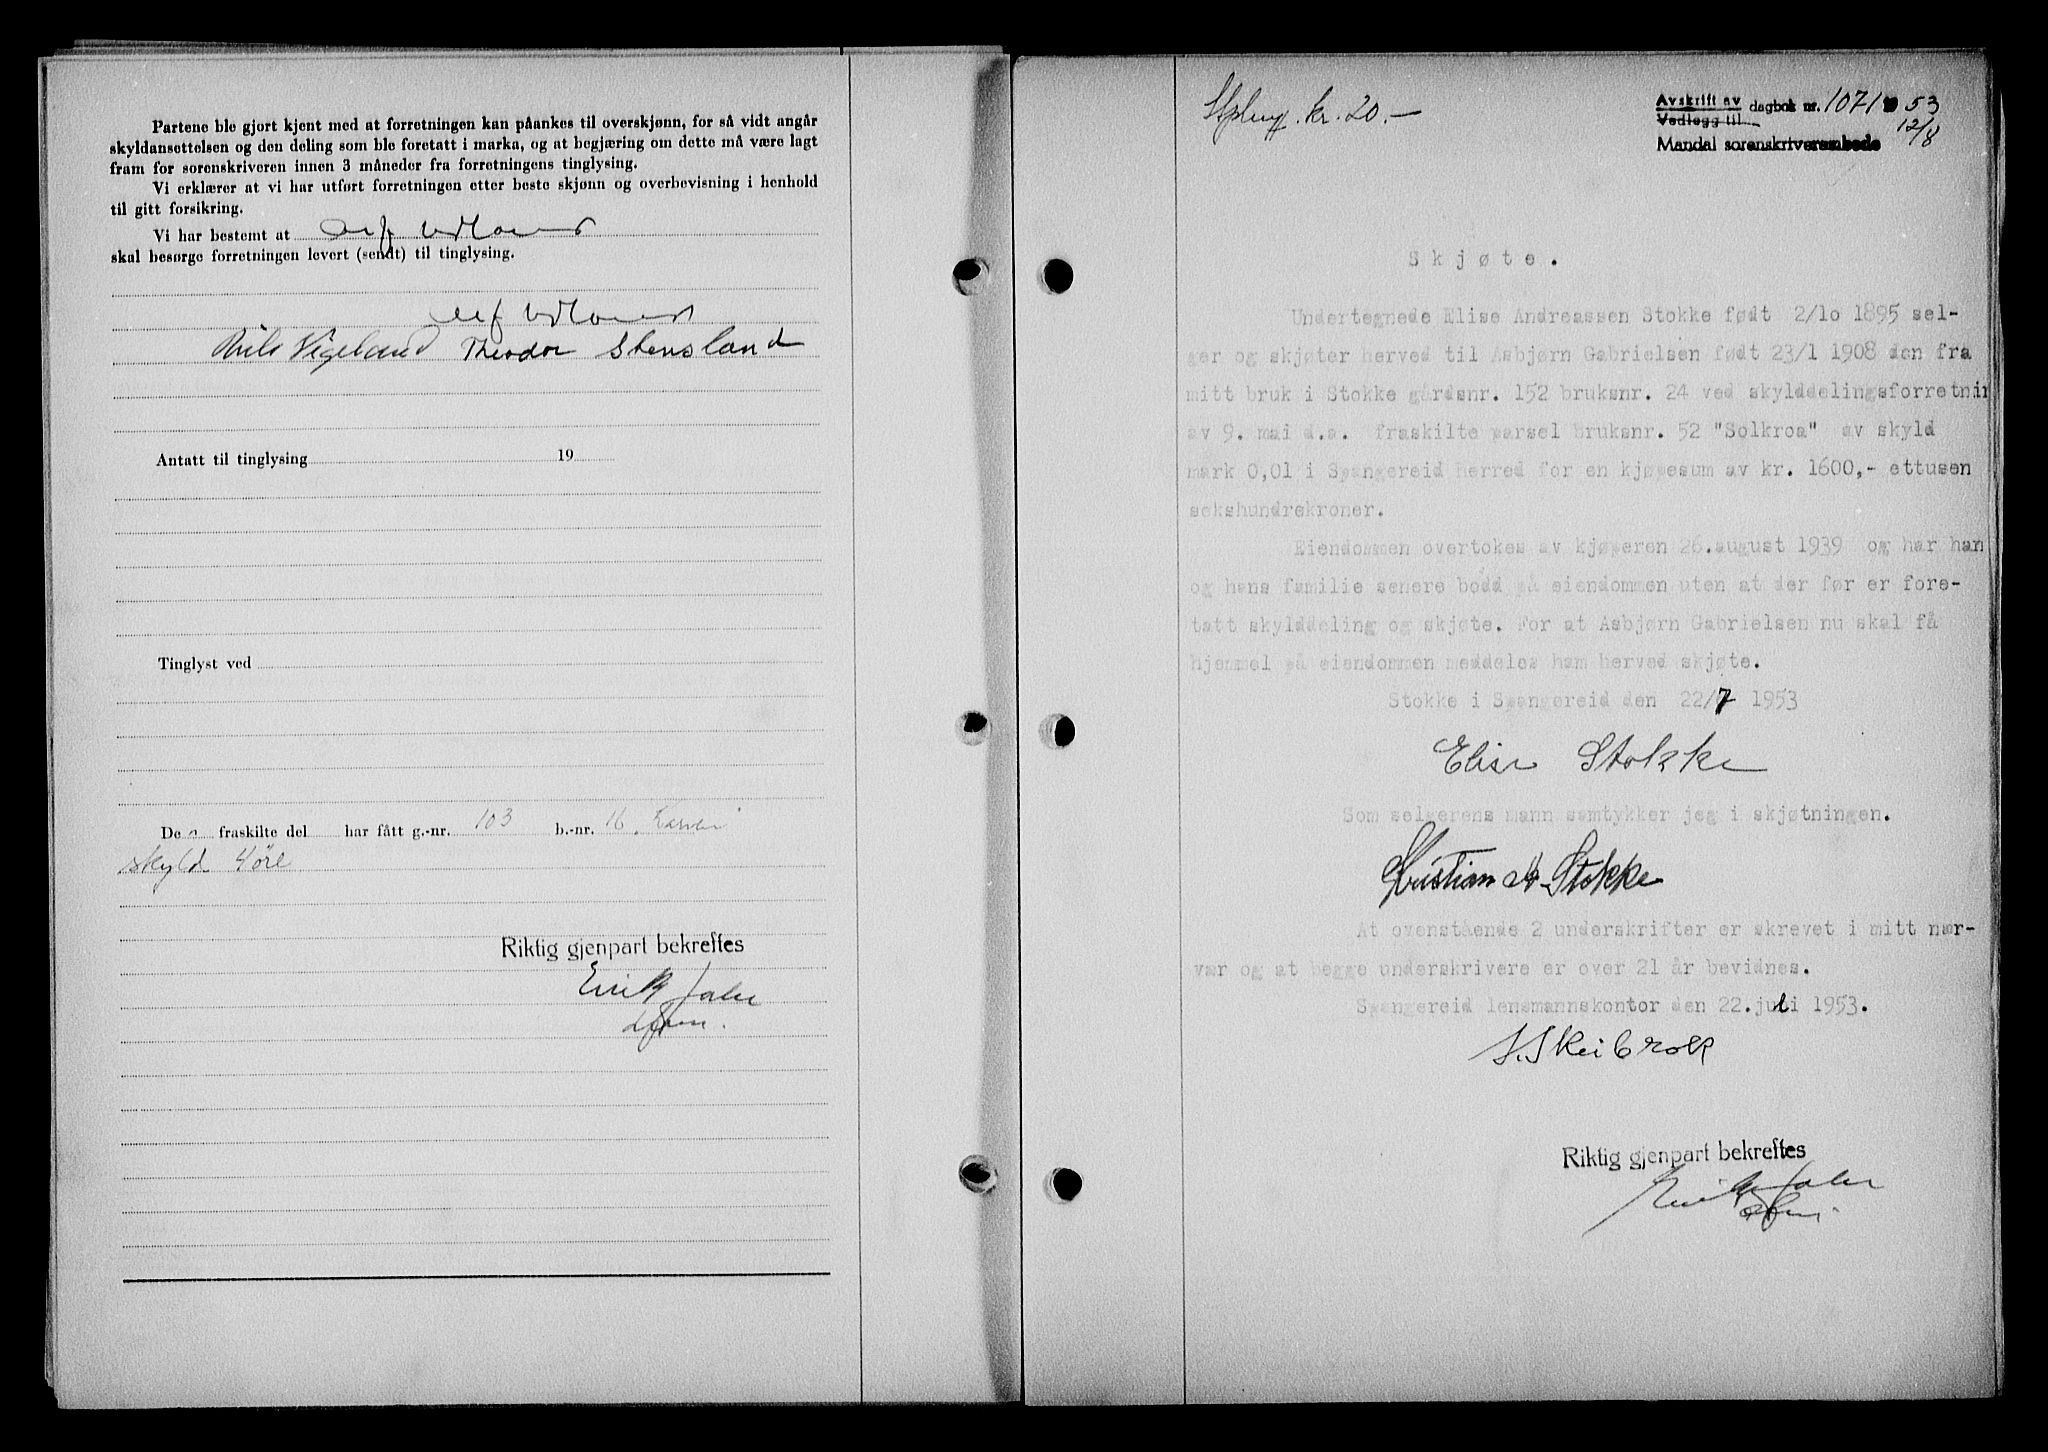 Partene ble gjort kjent med at forretningen kan påankes til overskjønn, for så vidt angår
skyldansettelsen og den deling som ble foretatt i marka, og at begjæring om dette må være lagt
fram for sorenskriveren innen 3 måneder fra forretningens tinglysing.
Vi erklærer at vi har utført forretningen etter beste skjønn og overbevisning i henhold
til gitt forsikring.
Vi har bestemt at
skal besørge forretningen levert (sendt) til tinglysing.
Nils Vigeland Theodor Stensland
Antatt til tinglysing 19
Tinglyst ved
De n fraskilte del har fått g.-nr. 103 b.-nr. 16.
skyld 4 øre
Riktig gjenpart bekreftes
Erik
Avskrift av dagbok nr. 1071 19 53
Vedlegg til
12/8
Mandal sorenskriverembede
kr. 20.-
Skjøte.
Undertegnede Elise Andreassen Stokke født 2/10 1895 sel-
ger og skjøter herved til Asbjørn Gabrielsen født 23/1 1908 den fra
mitt bruk i Stokke gårdsnr. 152 bruksnr. 24 ved skylddelingsforretnin
av 9. mai d.a. fraskilte parsel bruksnr. 52 "Solkroa" av skyld
mark 0,01 i Spangereid herred for en kjøpesum av kr. 1600,- ettusen
sekshundrekroner.
Eiendommen overtokes av kjøperen 26.august 1939 og har han
og hans familie senere bodd på eiendommen uten at der før er fore-
tatt skylddeling og skjøte. For at Asbjørn Gabrielsen nu skal få
hjemmel på eiendommen meddeles ham herved skjøte.
Stokke i Spangereid den 22/7 1953
Elise Stokke
Som selgerens mann samtykker jeg i skjøtningen.
Kristian A. Stokke
At ovenstående 2 underskrifter er skrevet i mitt nær-
vær og at begge underskrivere er over 21 år bevidnes.
Spangereid lensmannskontor den 22.juli 1953.
Skeibrok
Riktig gjenpart bekreftes
Erik